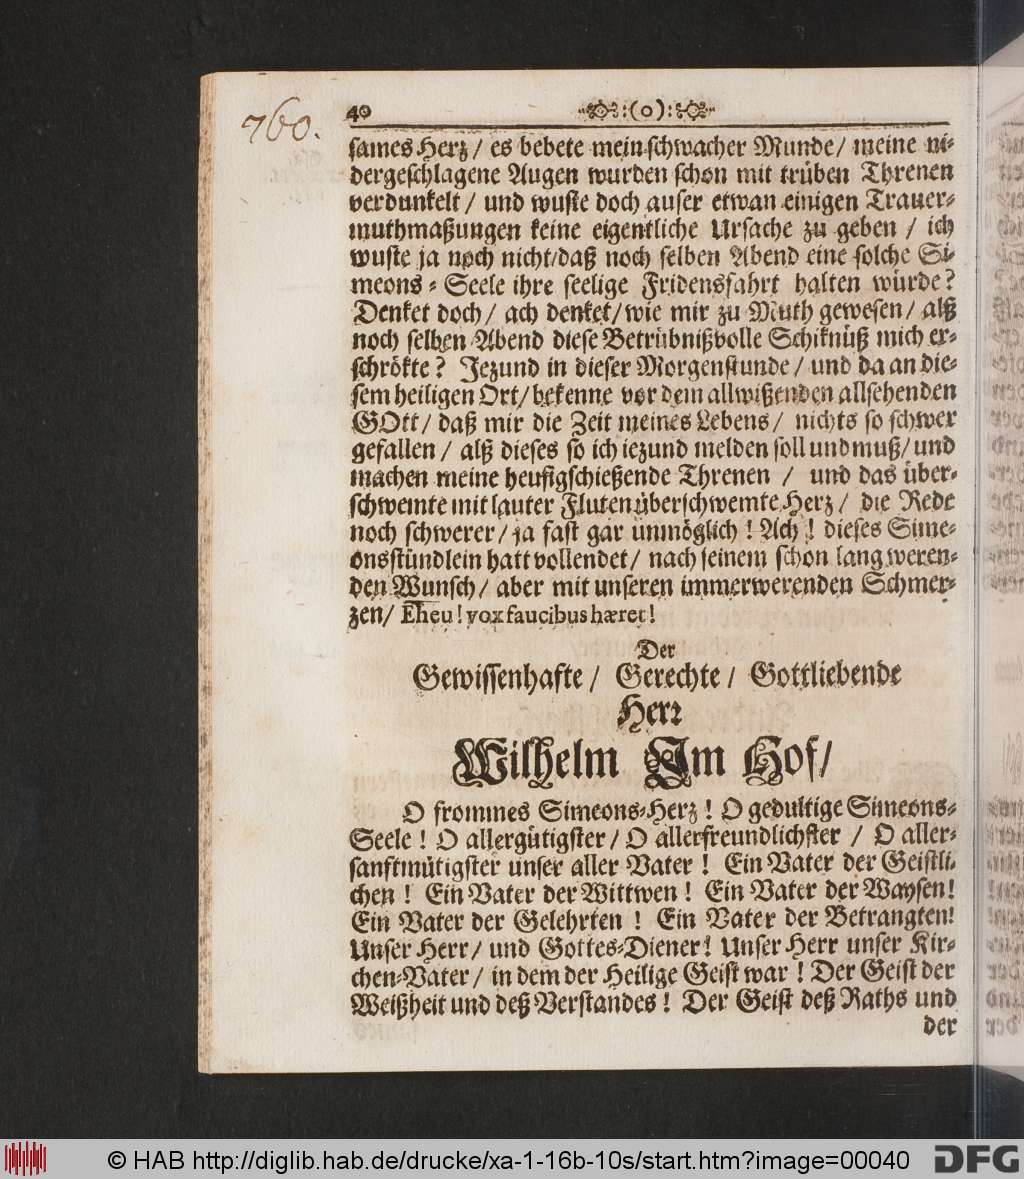 760.
40 :(o):
sames Herz / es bebete mein schwacher Munde / meine ni-
dergeschlagene Augen wurden schon mit trüben Threnen
verdunkelt / und wuste doch auser etwan einigen Trauer-
muthmaßungen keine eigentliche Ursache zu geben / ich
wuste ja noch nicht / daß noch selben Abend eine solche Si-
meons-Seele ihre seelige Fridensfahrt halten würde?
Denket doch / ach denket / wie mir zu Muth gewesen / alß
noch selben Abend diese Betrübnißvolle Schiknüß mich er-
schrökte? Jezund in dieser Morgenstunde / und da an die-
sem heiligen Ort / bekenne vor dem allwißenden allsehenden
GOtt / daß mir die Zeit meines Lebens / nichts so schwer
gefallen / alß dieses so ich iezund melden soll und muß / und
machen meine heufigschießende Threnen / und das über-
schwemte mit lauter Fluten überschwemte Herz / die Rede
noch schwerer / ja fast gar unmöglich! Ach! dieses Sime-
onsstündlein hatt vollendet / nach seinem schon lang weren-
den Wunsch / aber mit unseren immerwerenden Schmer-
zen / Eheu! vox faucibus hæret!
Der
Gewissenhafte / Gerechte / Gottliebende
Herr
Wilhelm Im Hof /
O frommes Simeons-Herz! O gedultige Simeons-
Seele! O allergütigster / O allerfreundlichster / O aller-
sanftmütigster unser aller Vater! Ein Vater der Geistli-
chen! Ein Vater der Wittwen! Ein Vater der Waysen!
Ein Vater der Gelehrten! Ein Vater der Betrangten!
Unser Herr / und Gottes-Diener! Unser Herr unser Kir-
chen-Vater / in dem der Heilige Geist war! Der Geist der
Weißheit und deß Verstandes! Der Geist deß Raths und
der
© HAB http://diglib.hab.de/drucke/xa-1-16b-10s/start.htm?image=00040
DFG